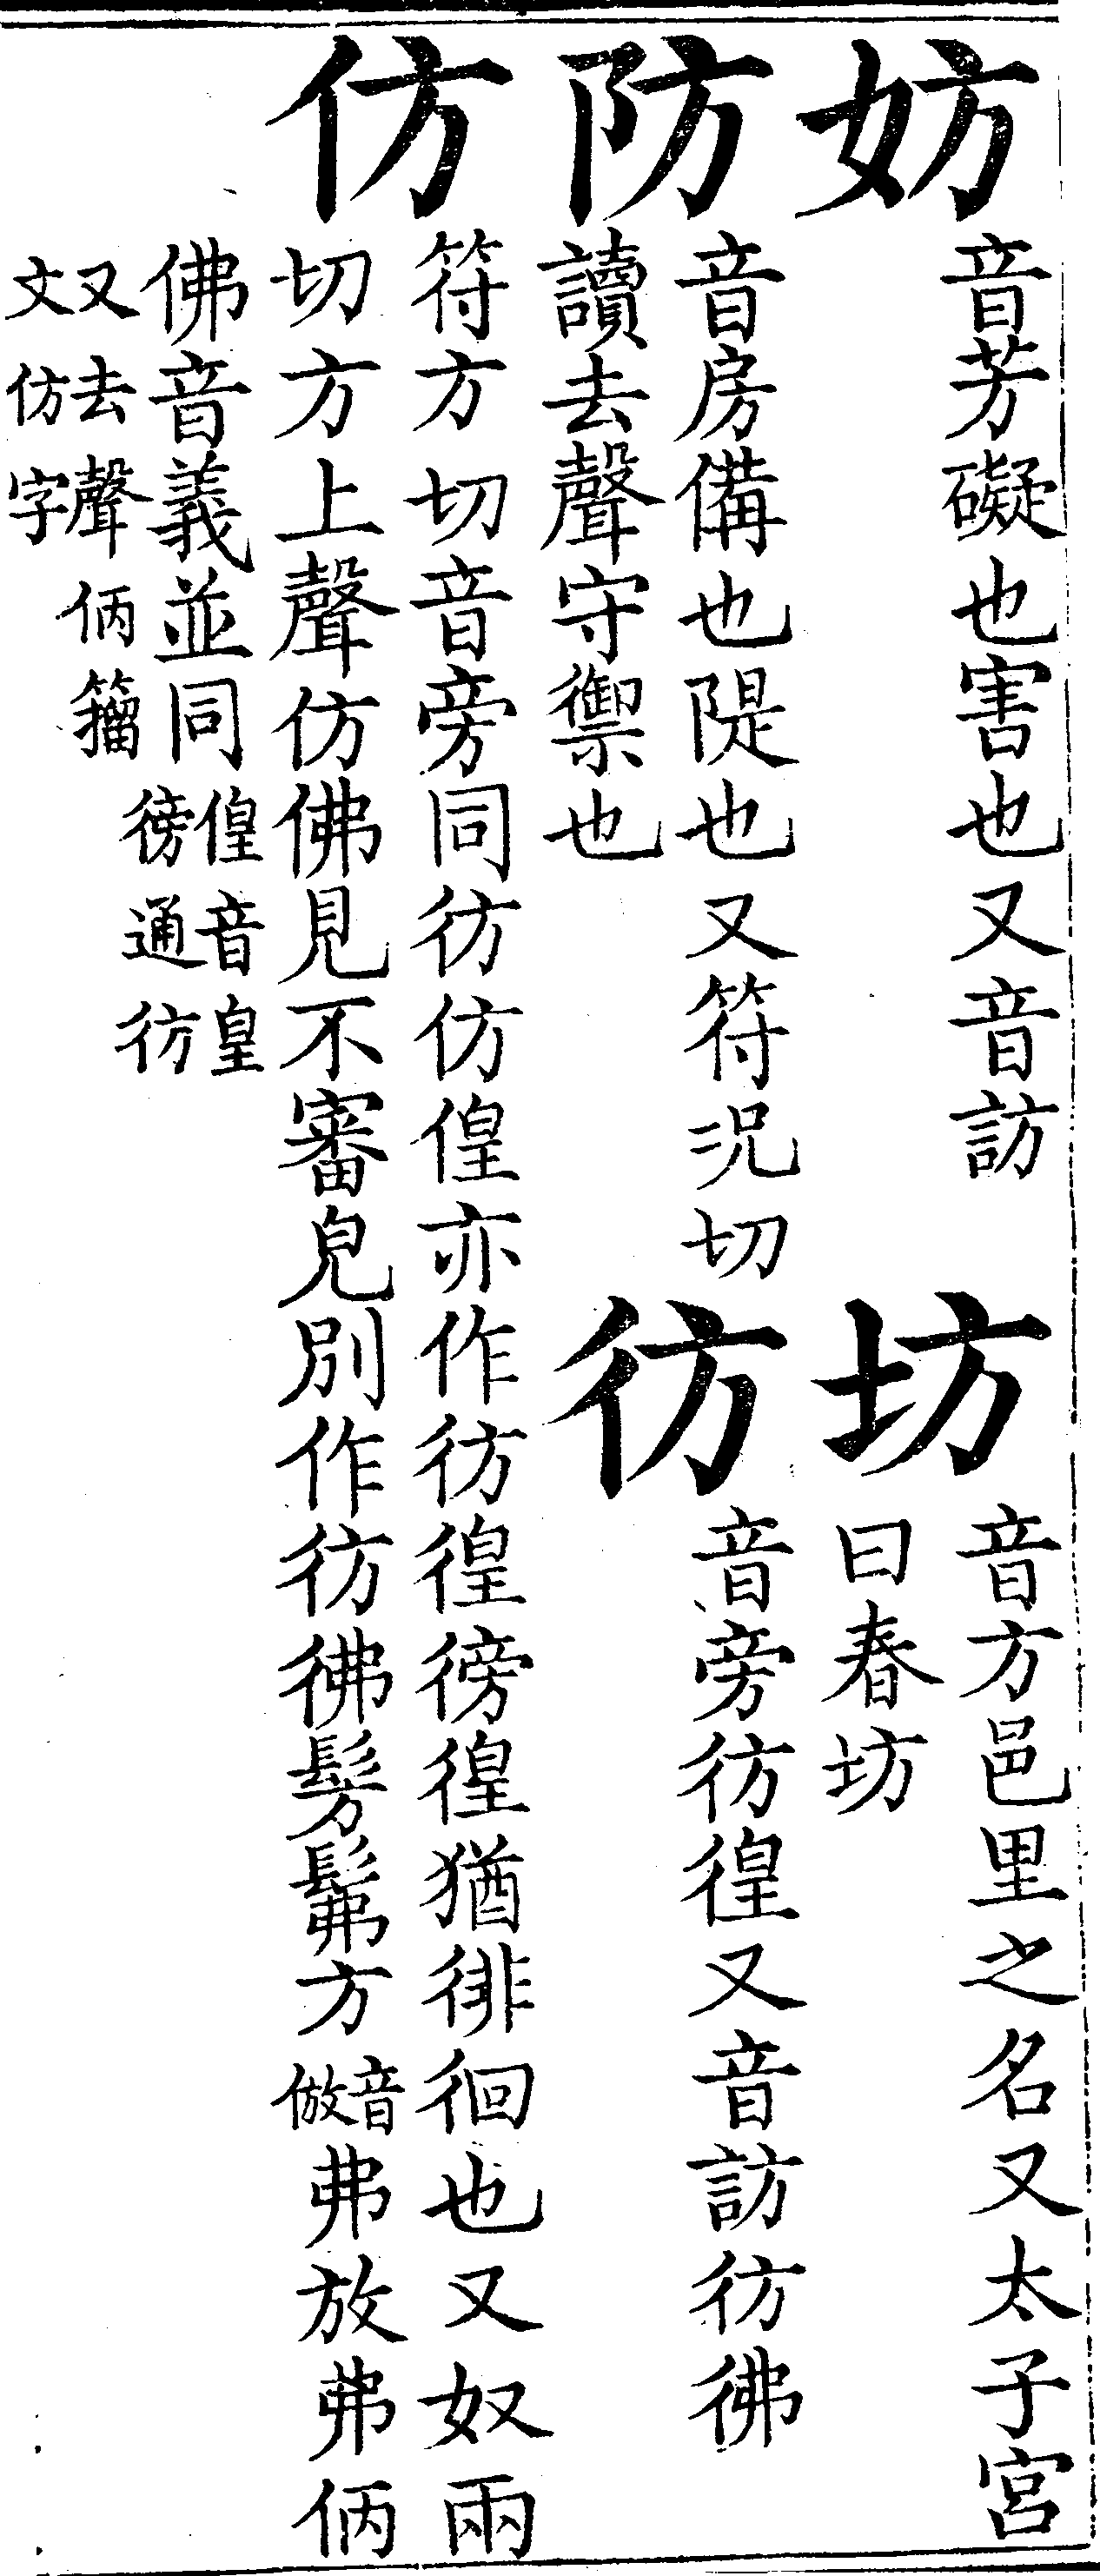 妨音芳礙也害也又音訪
坊音方邑里之名又太子宮
曰春坊
防音房備也隄也又符況切
讀去聲守禦也
彷音旁彷徨又音訪彷彿
仿符方切音旁同彷仿偟亦作彷徨徬徨猶徘徊也又奴兩
切方上聲仿佛見不審皃別作彷彿髣髴方音倣弗放弗㑂
佛音義並同偟音皇徬通彷
又去聲㑂籀
文仿字